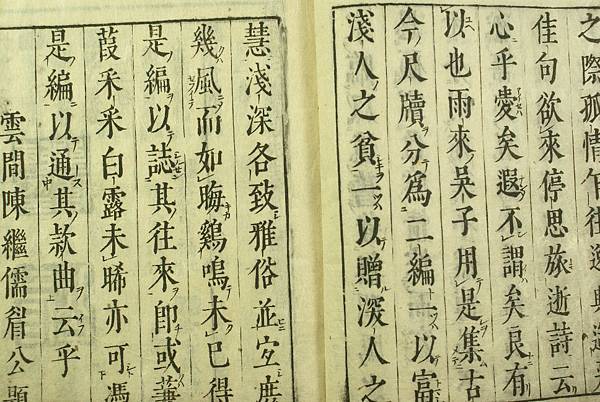 之際孤情乍徃逸興遄
佳句欲來停思旅逝詩云
心乎愛矣遐不謂矣良有
以也雨來吳子用是集古
今尺牘分為二編一以富
淺人之貧一以贈深人之
慧淺深各致雅俗並宜庶
幾風雨如晦鷄鳴未已得
是編以誌其徃來即或蒹
葭采采白露未晞亦可馮
是編以通其款曲云乎
雲間陳繼儒眉公題